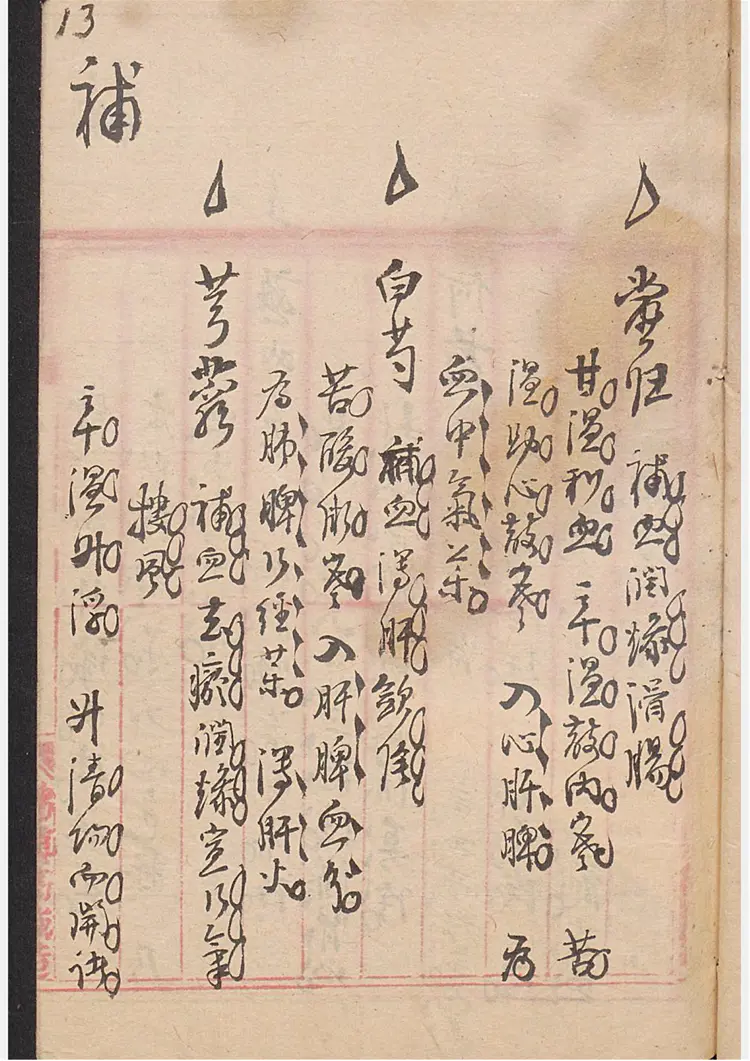 13
補
當归 補血潤燥滑腸
甘溫和血 辛溫散內寒 苦
溫助心散寒 入心肝脾 为
血中氣药
白芍 補血瀉肝歛陰
苦酸微寒 入肝脾血分
为肺脾行經药 瀉肝火
芎藭 補血去瘀潤燥宣行氣
搜風
辛溫升浮 升清阳而開諸